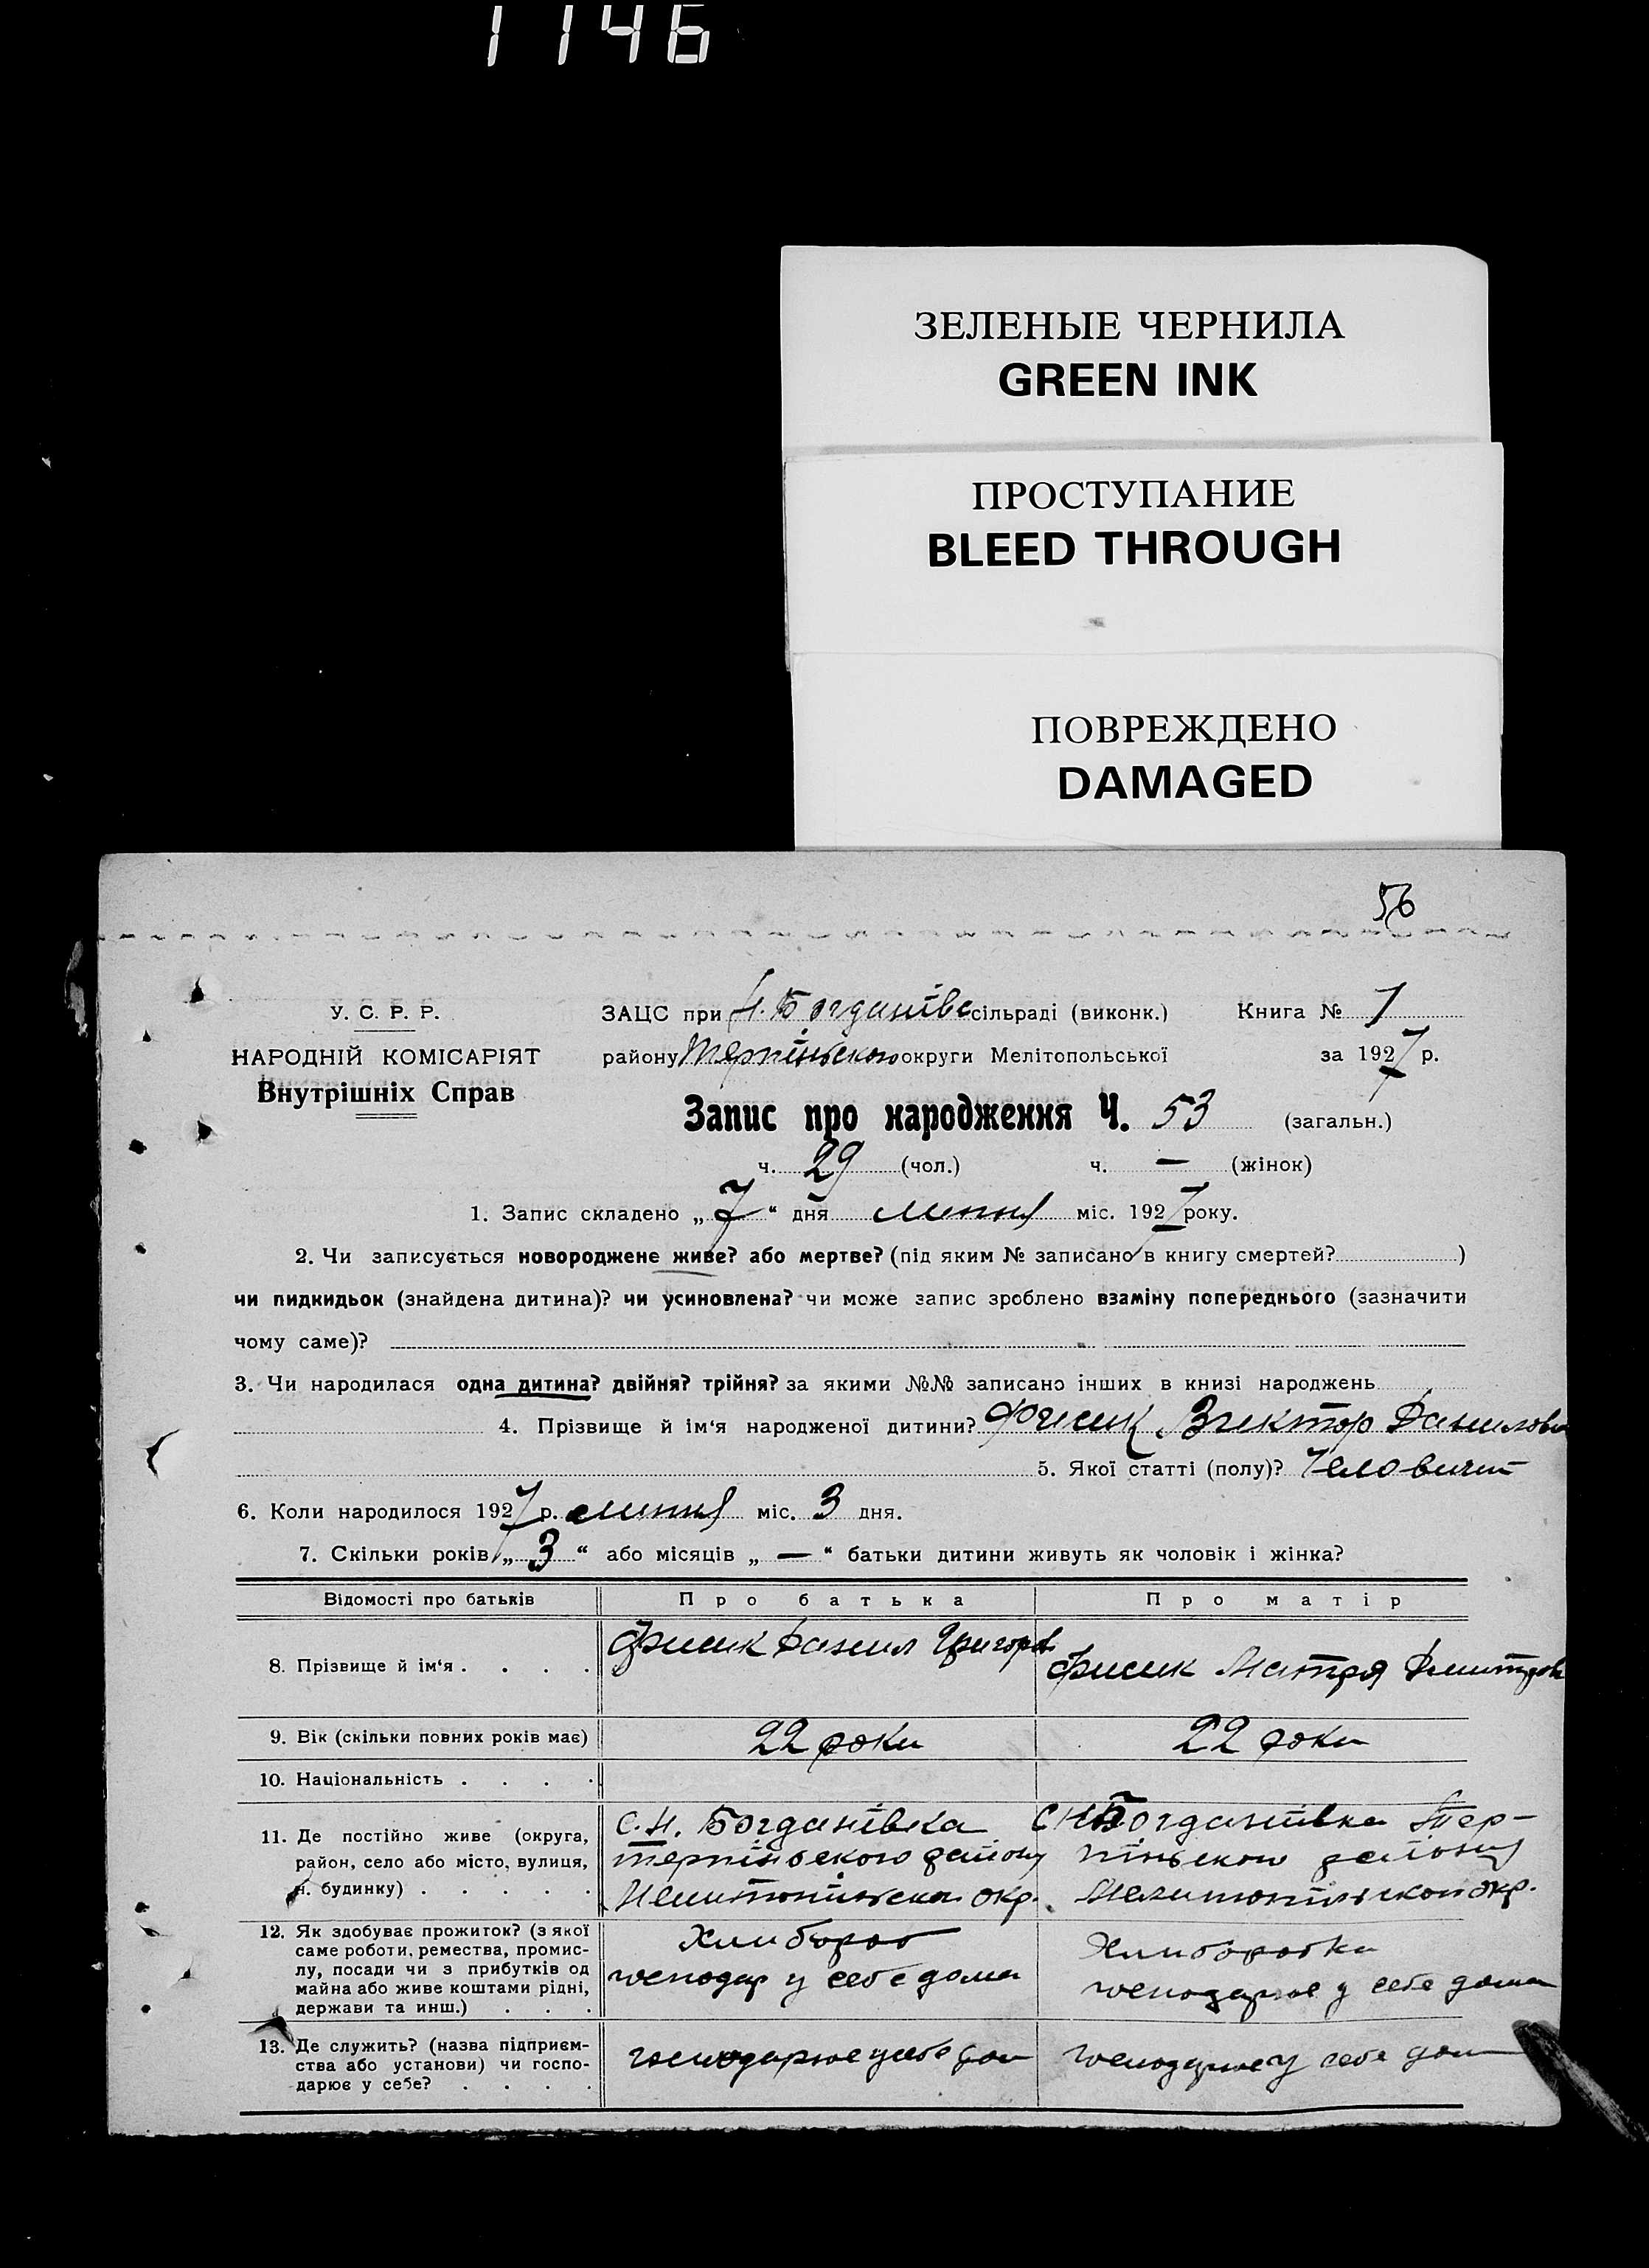 1146
ЗЕЛЕНЫЕ ЧЕРНИЛА
GREEN INK
ПРОСТУПАНИЕ
BLEED THROUGH
ПОВРЕЖДЕНО
DAMAGED
56
У. С. Р. Р.
НАРОДНІЙ КОМІСАРІЯТ
Внутрішніх Справ
ЗАЦС при Н. Богданівс сільраді (виконк.) Книга № 1
району Терпіньского округи Мелітопольської за 1927 р.
Запис про народження Ч. 53 (загальн.)
ч. 29 (чол.) ч. — (жінок)
1. Запис складено „ 7 “ дня липня міс. 1927 року.
2. Чи записується новороджене живе? або мертве? (під яким № записано в книгу смертей? )
чи пидкидьок (знайдена дитина)? чи усиновлена? чи може запис зроблено взаміну попереднього (зазначити
чому саме)?
3. Чи народилася одна дитина? двійня? трійня? за якими №№ записано інших в книзі народжень
4. Прізвище й ім‘я народженої дитини? Данилови
5. Якої статті (полу)?
6. Коли народилося 1927 р. липня міс. 3 дня.
7. Скільки років „ 3 “ або місяців „ — “ батьки дитини живуть як чоловік і жінка?
Відомості про батьків Про батька Про матір
8. Прізвище й ім‘я . . . . Фисик Данил Григоров Фисик Мотря Дмитров
9. Вік (скільки повних років має) 22 роки 22 роки
10. Національність . . . .
11. Де постійно живе (округа,
район, село або місто, вулиця,
н. будинку) . . . . .
С. Н. Богданівка
терпіньского району
окр.
С Н Богданівка Тер-
піньского району
окр.
12. Як здобуває прожиток? (з якої
саме роботи, ремества, промис-
лу, посади чи з прибутків од
майна або живе коштами рідні,
держави та инш.) . . .
Хлибороб
господар у себе дома
Хлиборобка
господарює у себе дома
13. Де служить? (назва підприєм-
ства або установи) чи госпо-
дарює у себе? . . . .
господарює у себе дом
господарює у себе дом